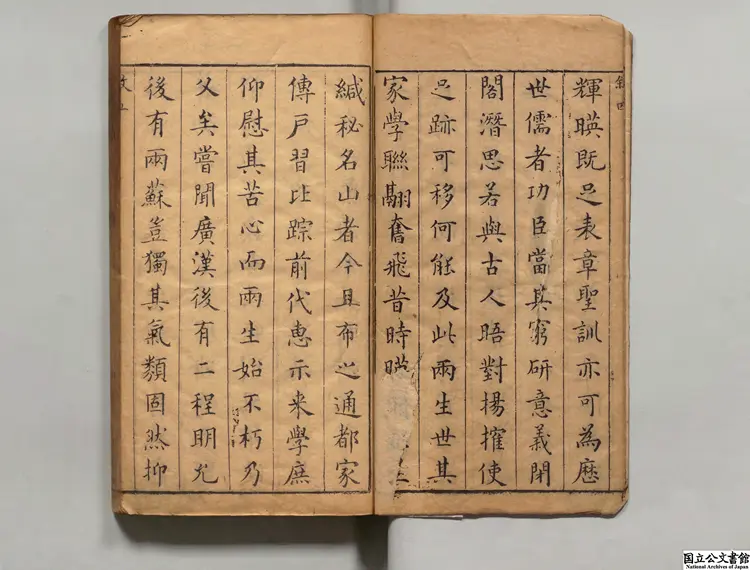 敘四
輝暎既足表章聖訓亦可為歷
世儒者功臣當其窮研意義閉
閣潛思若與古人晤對揚搉使
足跡可移何能及此兩生世其
家學聯翩奮飛昔時暎
緘秘名山者今且布之通都家
傳戶習比踪前代惠示来學庶
仰慰其苦心而兩生始不朽乃
父矣嘗聞廣漢後有二程明允
後有兩蘇豈獨其氣類固然抑
国立公文書館
National Archives of Japan